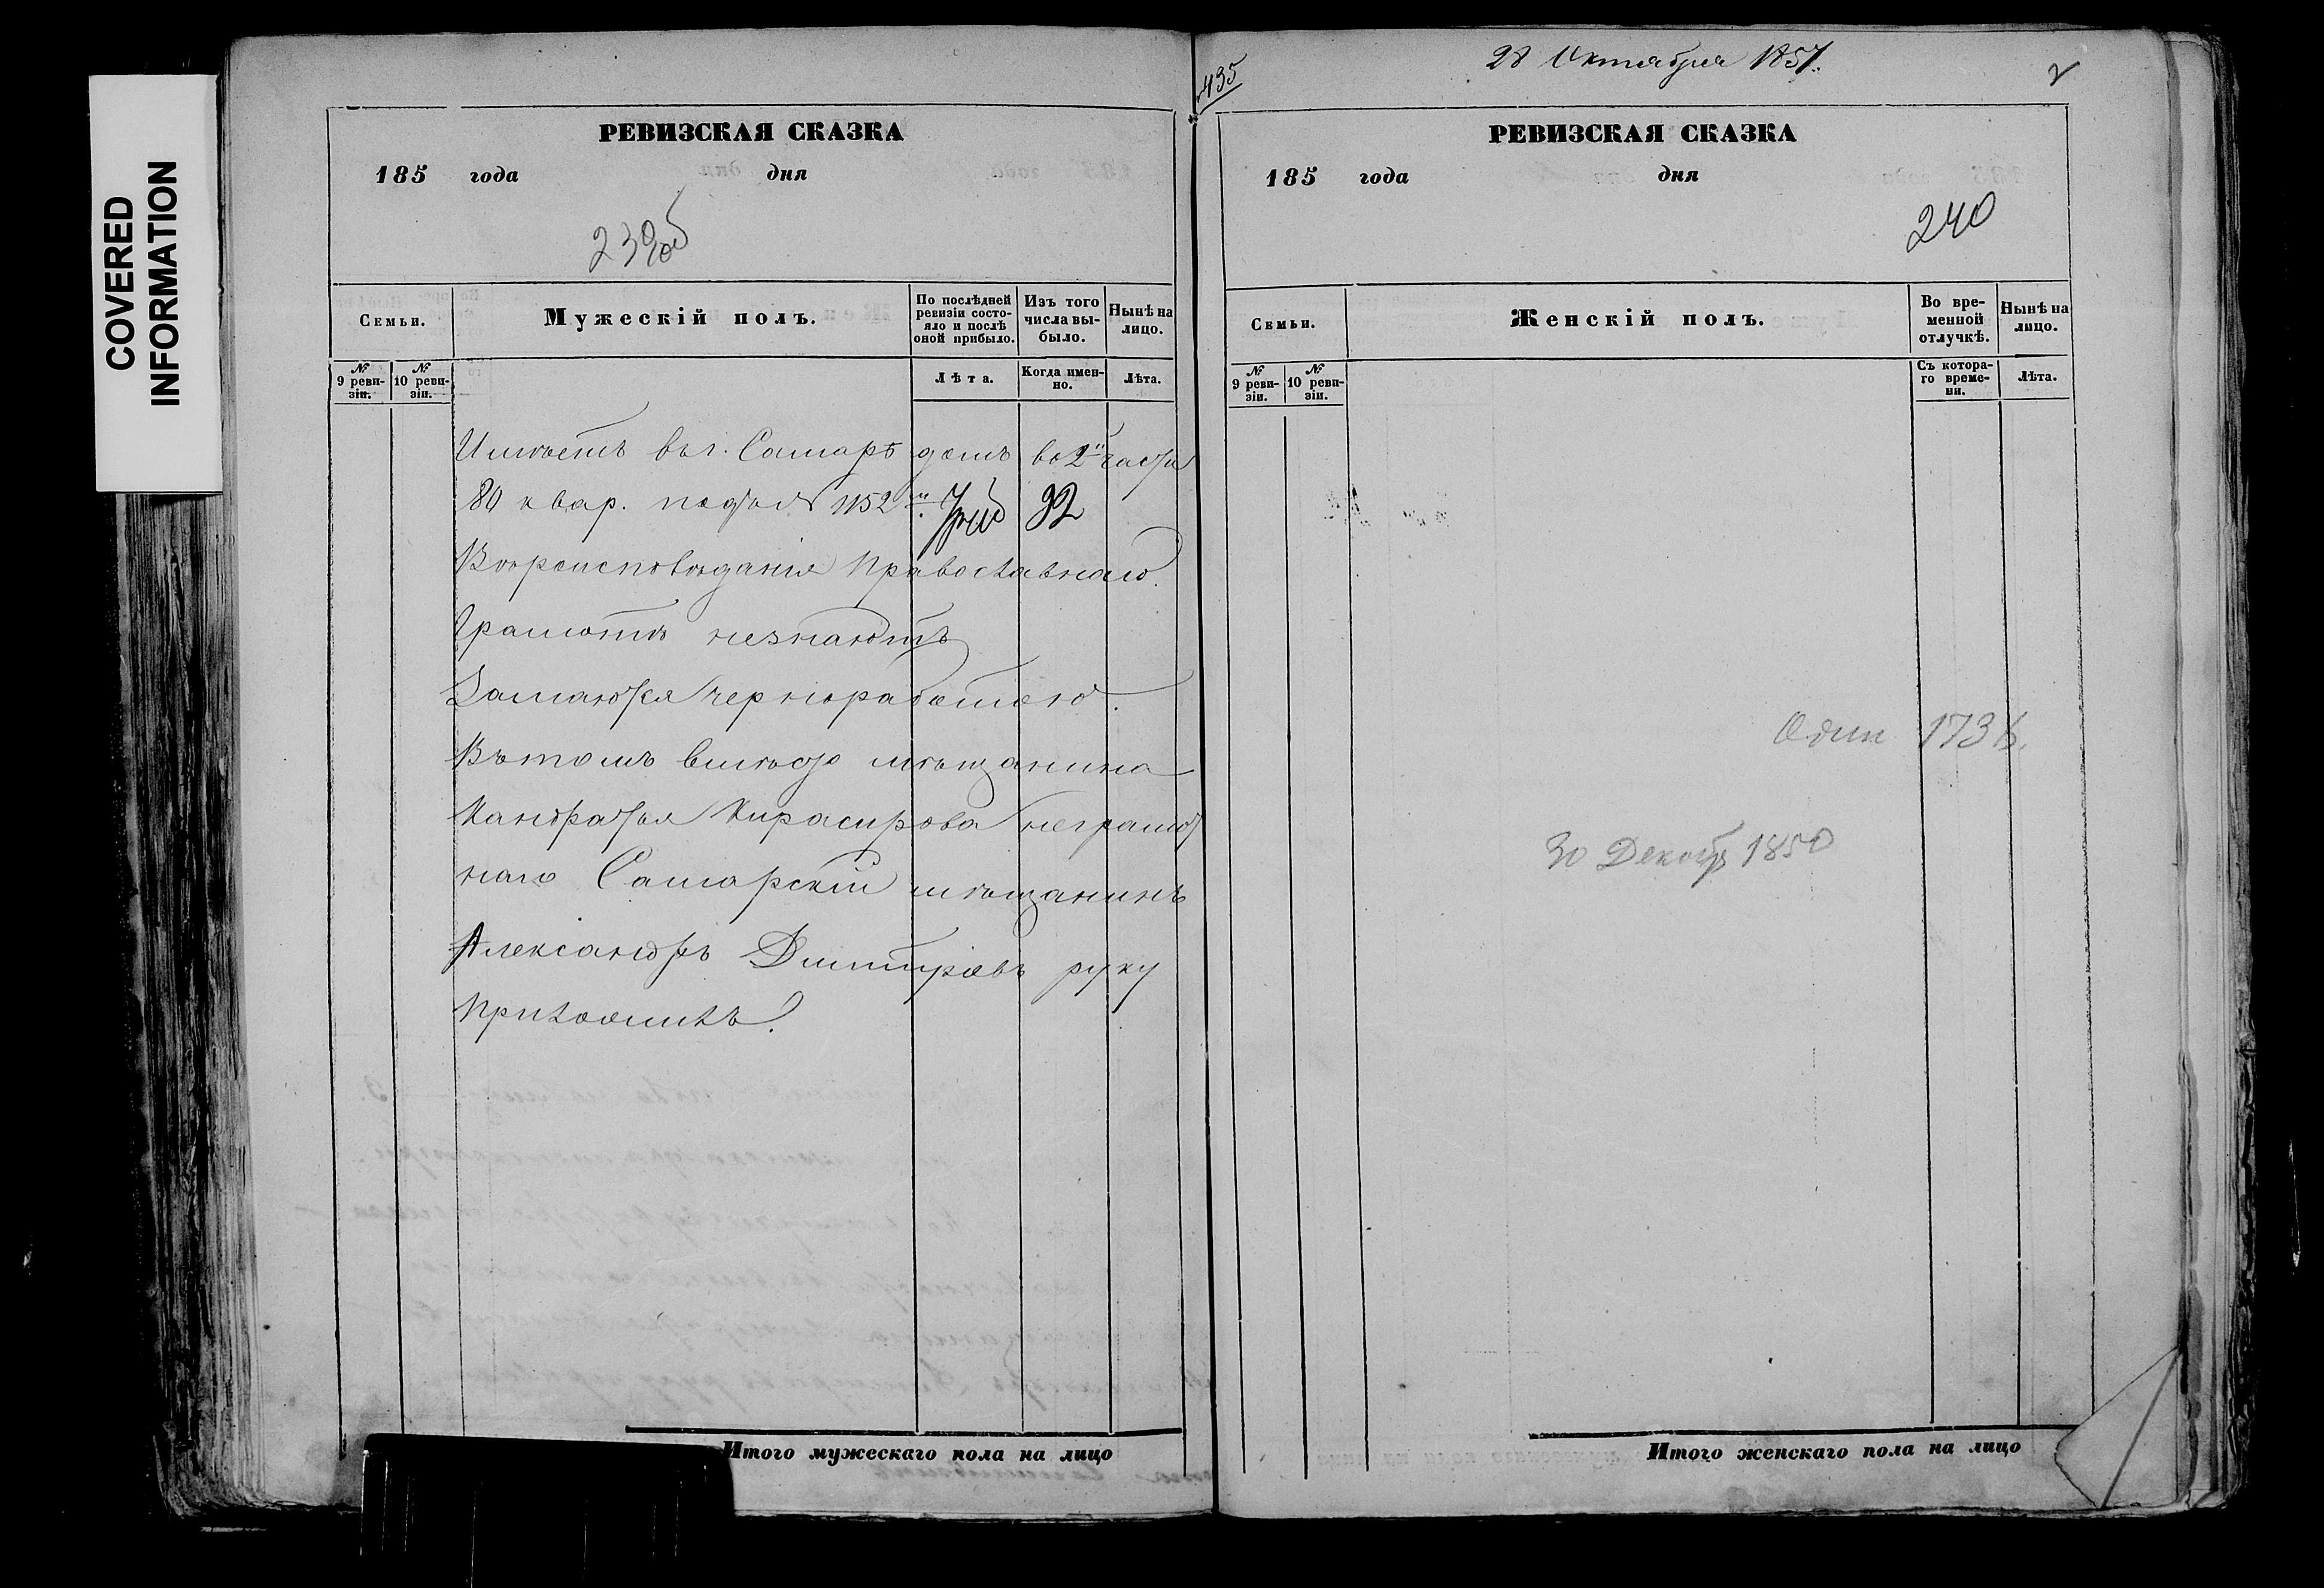 COVERED
INFORMATION
РЕВИЗСКАЯ СКАЗКА
185 года дня
239об
Семьи.
Мужескій полъ.
По послѣдней ревизіи состояло и послѣ оной прибыло.
Изъ того числа выбыло.
Нынѣ на лицо.
№ 9 ревизіи.
№ 10 ревизіи.
Лѣта.
Когда именно.
Лѣта.
Имѣетъ въ г. Самарѣ домъ во 2й части
80 квар. подъ № 1152м
32
Вѣроисповѣданія Православнаго.
Грамотѣ незнаютъ
Занимаются черноработою.
Въ томъ вмѣсто мѣщанина
Кандратья Кирасирова неграмот
наго Самарскій мѣщанинъ
Александръ Дмитріевъ руку
приложилъ.
Итого мужескаго пола на лицо
435
28 Октября 1857.
2
РЕВИЗСКАЯ СКАЗКА
185 года дня
240
Семьи.
Женскій полъ.
Во временной отлучкѣ.
Нынѣ на лицо.
№ 9 ревизіи.
№ 10 ревизіи.
Съ котораго времени.
Лѣта.
Один 173
30 Декабр 1850
Итого женскаго пола на лицо